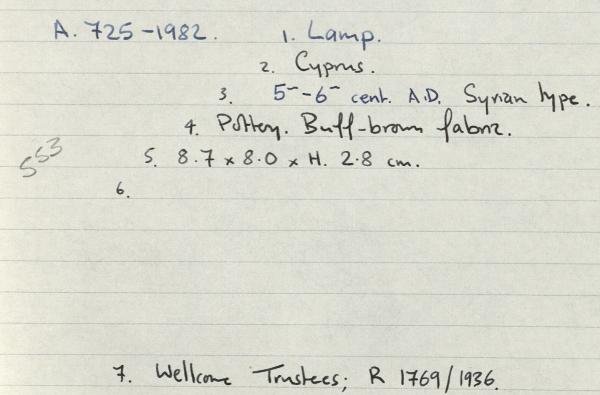 A. 725-1982. 1. Lamp.
2. Cyprus.
3. 5– - 6– cent. A.D. Syrian type.
4. Pottery. Buff-brown fabric.
553
5. 8.7 x 8.0 x H. 2.8 cm.
6.
7. Wellcome Trustees; R 1769/1936.